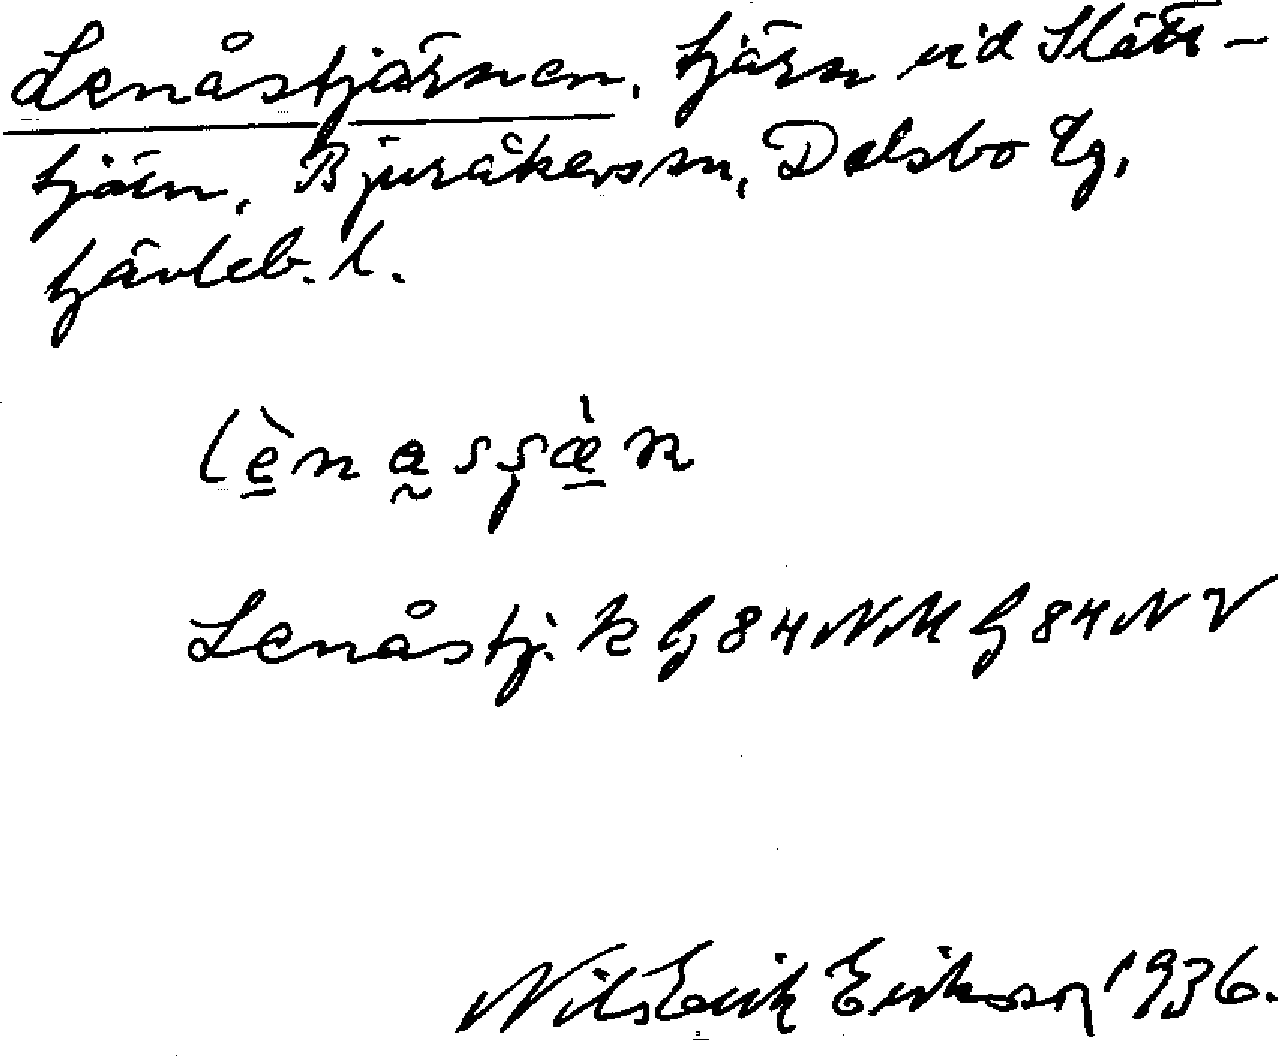 Lenåstjärnen, tjärn vid Slått-
tjärn, Bjuråkers sn, Delsbo tg,
Gävleb. l.
Lenåstj. k G 84 NM G 84 NV
Nils Erik Erikson 1936.